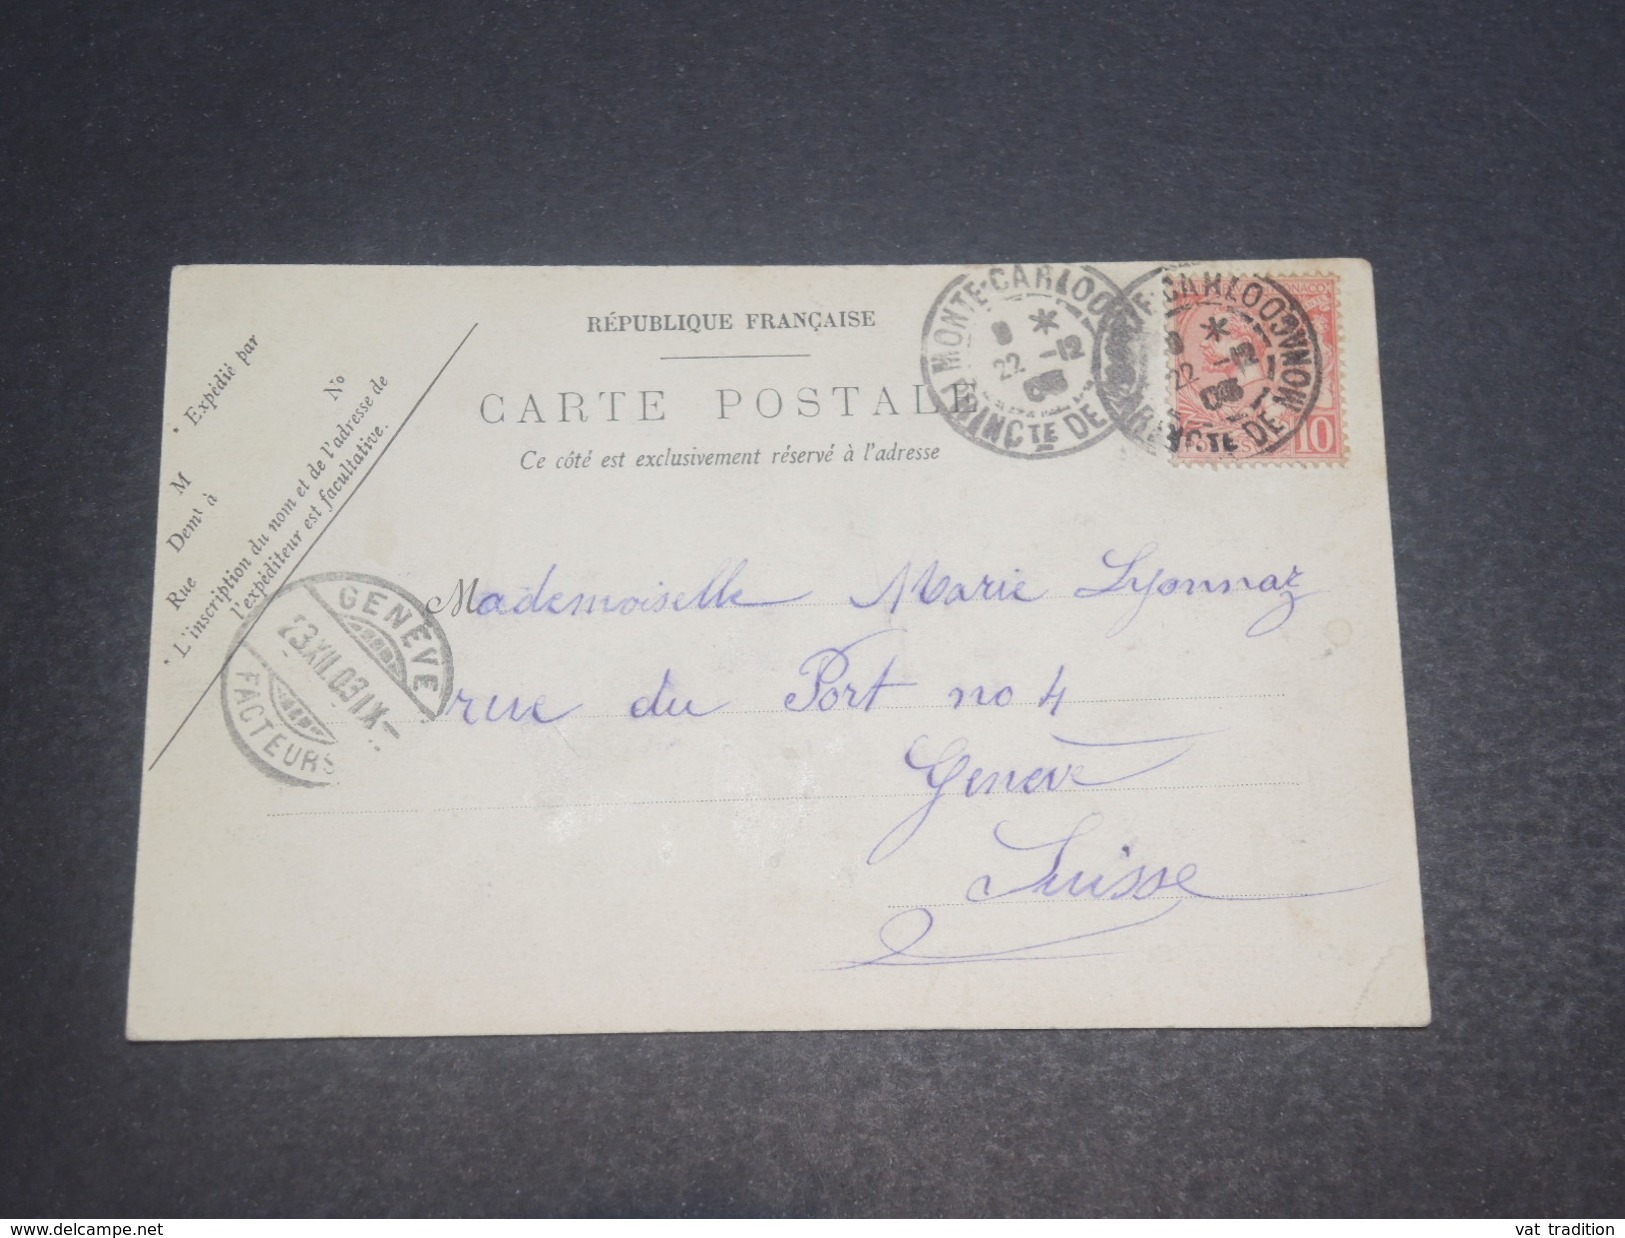 RÉPUBLIQUE FRANÇAISE
CARTE POSTALE
Ce côté est exclusivement réservé à l'adresse
• Expédié par
M
No
Demt à
Rue
• L'inscription du nom et de l'adresse de
l'expéditeur est facultative.
MONTE-CARLO
PRINCTE DE
22 -12
03
MONTE-CARLO
PRINCTE DE MONACO
22 -12
MONACO
POSTES
10
GENÈVE
23.XII.03 IX-
FACTEURS
Mademoiselle Marie Lyonnaz
rue du Port no 4
Genève
Suisse
www.delcampe.net
vat tradition